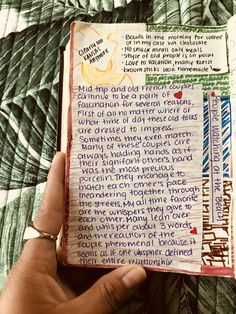 Clearly no
racist
anymore
Bowls in the morning for coffee
or in my case hot chocolate
No garage meals only meals
Style of old people is on point
Love to vacation, many tourist
homemade
Mid trip and old French couples
continue to be a point of
fascination for several reasons.
First of all no matter where or
what time of day these old folks
are dressed to impress.
Sometimes they even match.
Many of these couples are
always holding hands as if
their significant other's hand
was the most precious
porcelin. They manage to
match each other's pace
meandering together through
the streets. My all time favorite
are the whispers they give to
each other. Many lean over
and whisper about 3 words
and the reaction of the
couple phenomenal because it
seems as if one whisper defined
their entire relationship.
People watching at the Beach